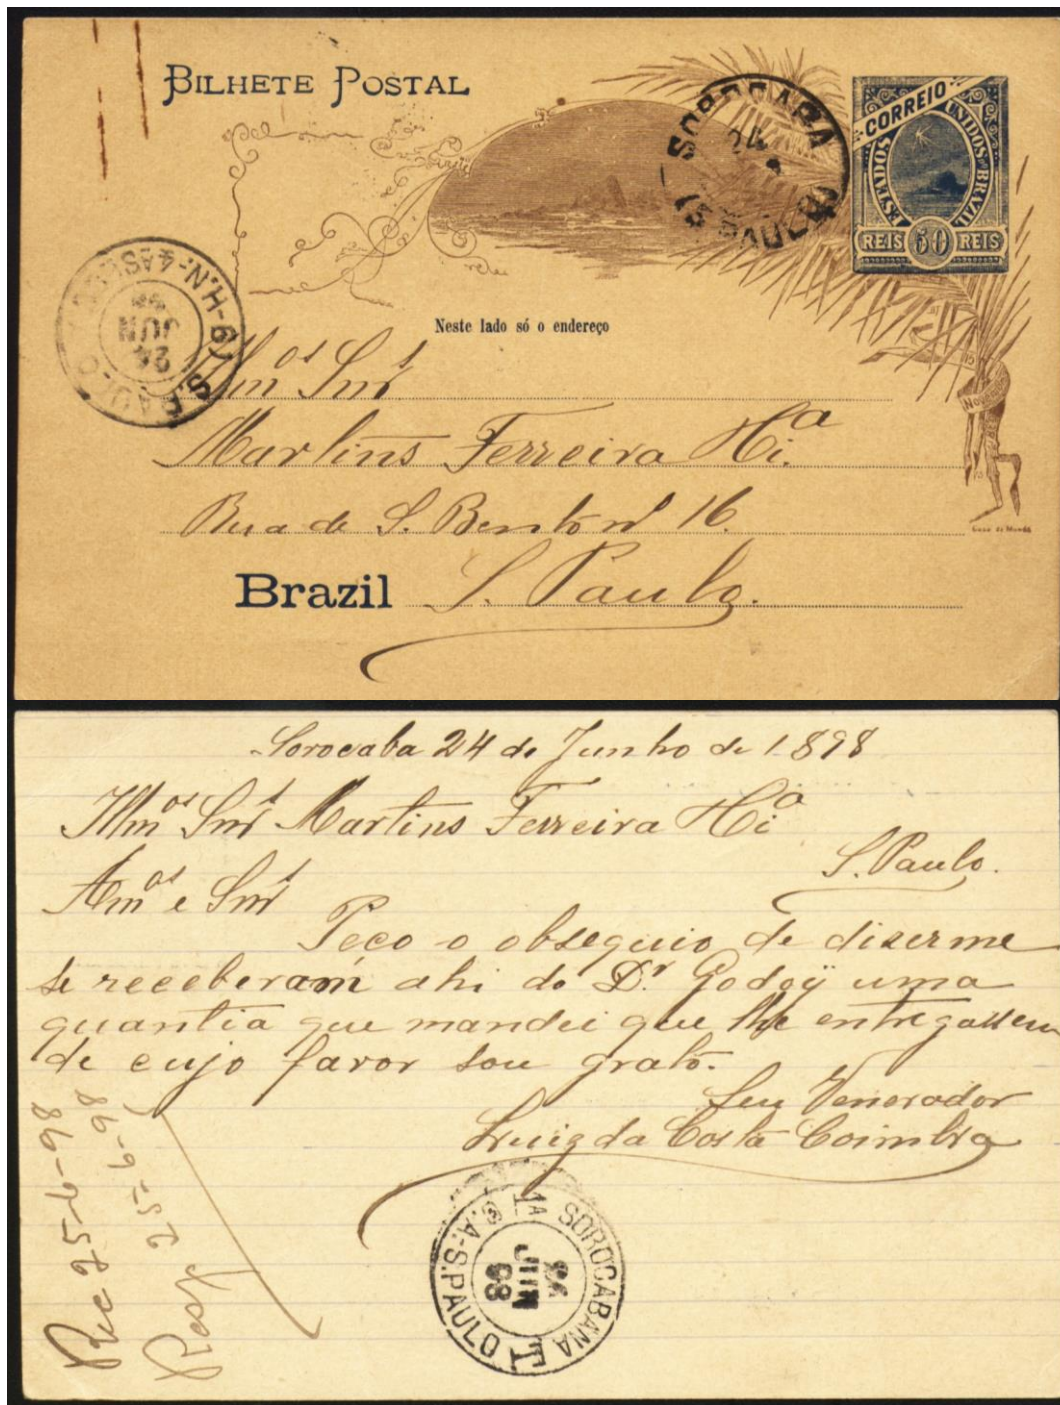 BILHETE POSTAL
CORREIO
ESTADOS UNIDOS DO BRAZIL
REIS 50 REIS
SOROCABA
24
(S. PAULO)
24
JUN
98
S. PAULO
Neste lado só o endereço
Illmos Snrs
Martins Ferreira & Cia
Rua de S. Bento nº 16.
Brazil S. Paulo.
Casa da Moeda
Sorocaba 24 de Junho de 1898
Illmos Snrs Martins Ferreira & Cia
S. Paulo.
Ammos e Snrs
Peço o obsequio de dizerme
se receberam ahi do Dr Godoÿ uma
quantia que mandei que lhe entregassem
de cujo favor sou grato.
Seu Venerador
Luiz da Costa Coimbra
Rec 25-6-98
Resp 25-6-98
1A SOROCABANA T
24
JUN
98
S.A-S.PAULO